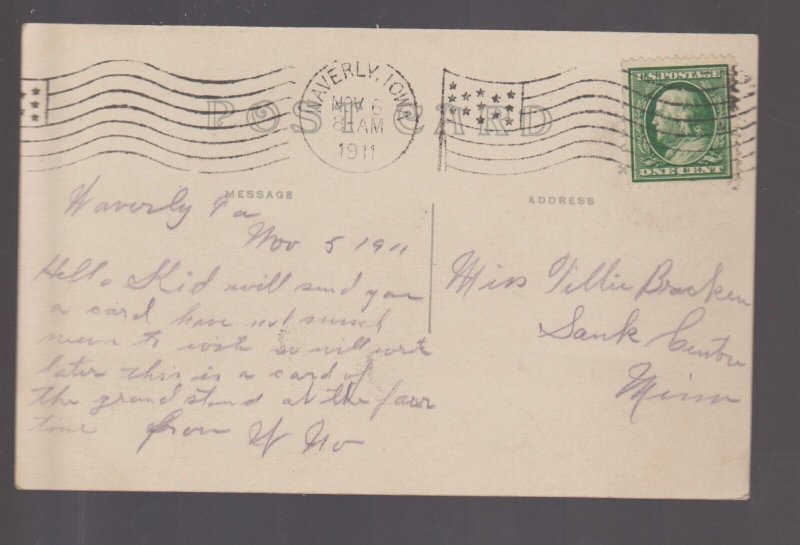 WAVERLY, IOWA
NOV 6
8 AM
1911
U.S. POSTAGE
ONE CENT
POST CARD
MESSAGE
ADDRESS
Waverly Ia
Nov 5 1911
Hello Kid will send you
a card have not much
to so will write
later this is a card of
the grand stand at the fair
time from U No
Miss Tillie Bracken
Sauk Centre
Minn